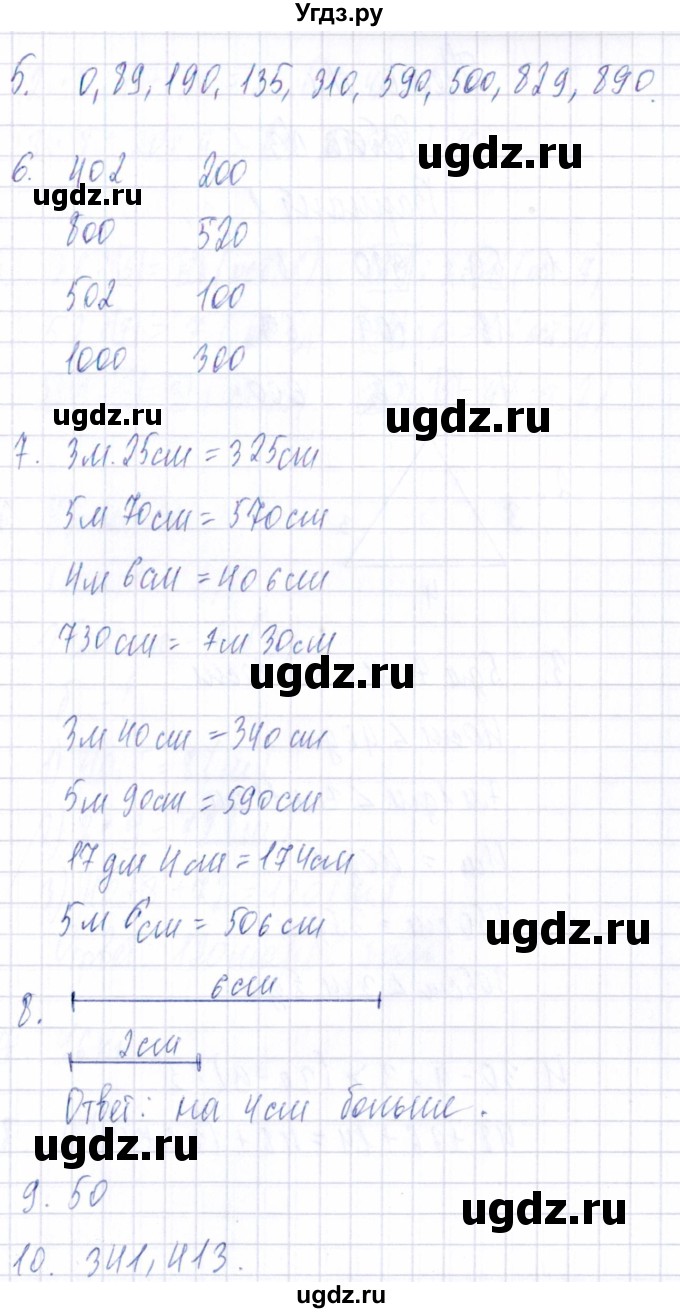 Угдз.ру
5. 0, 89, 190, 135, 310, 590, 500, 829, 890.
ugdz.ru
6. 402 200
ugdz.ru
800 520
502 100
1000 300
ugdz.ru
ugdz.ru
7. 3м. 25см = 325см
5м 70см = 570см
4м 6см = 406см
730см = 7м 30см
ugdz.ru
3м 40см = 340см
5м 90см = 590см
17дм 4см = 174см
5м 6см = 506см
ugdz.ru
6см
8.
2см
Ответ: на 4см больше.
ugdz.ru
9. 50
ugdz.ru
10. 341, 413.
ugdz.ru